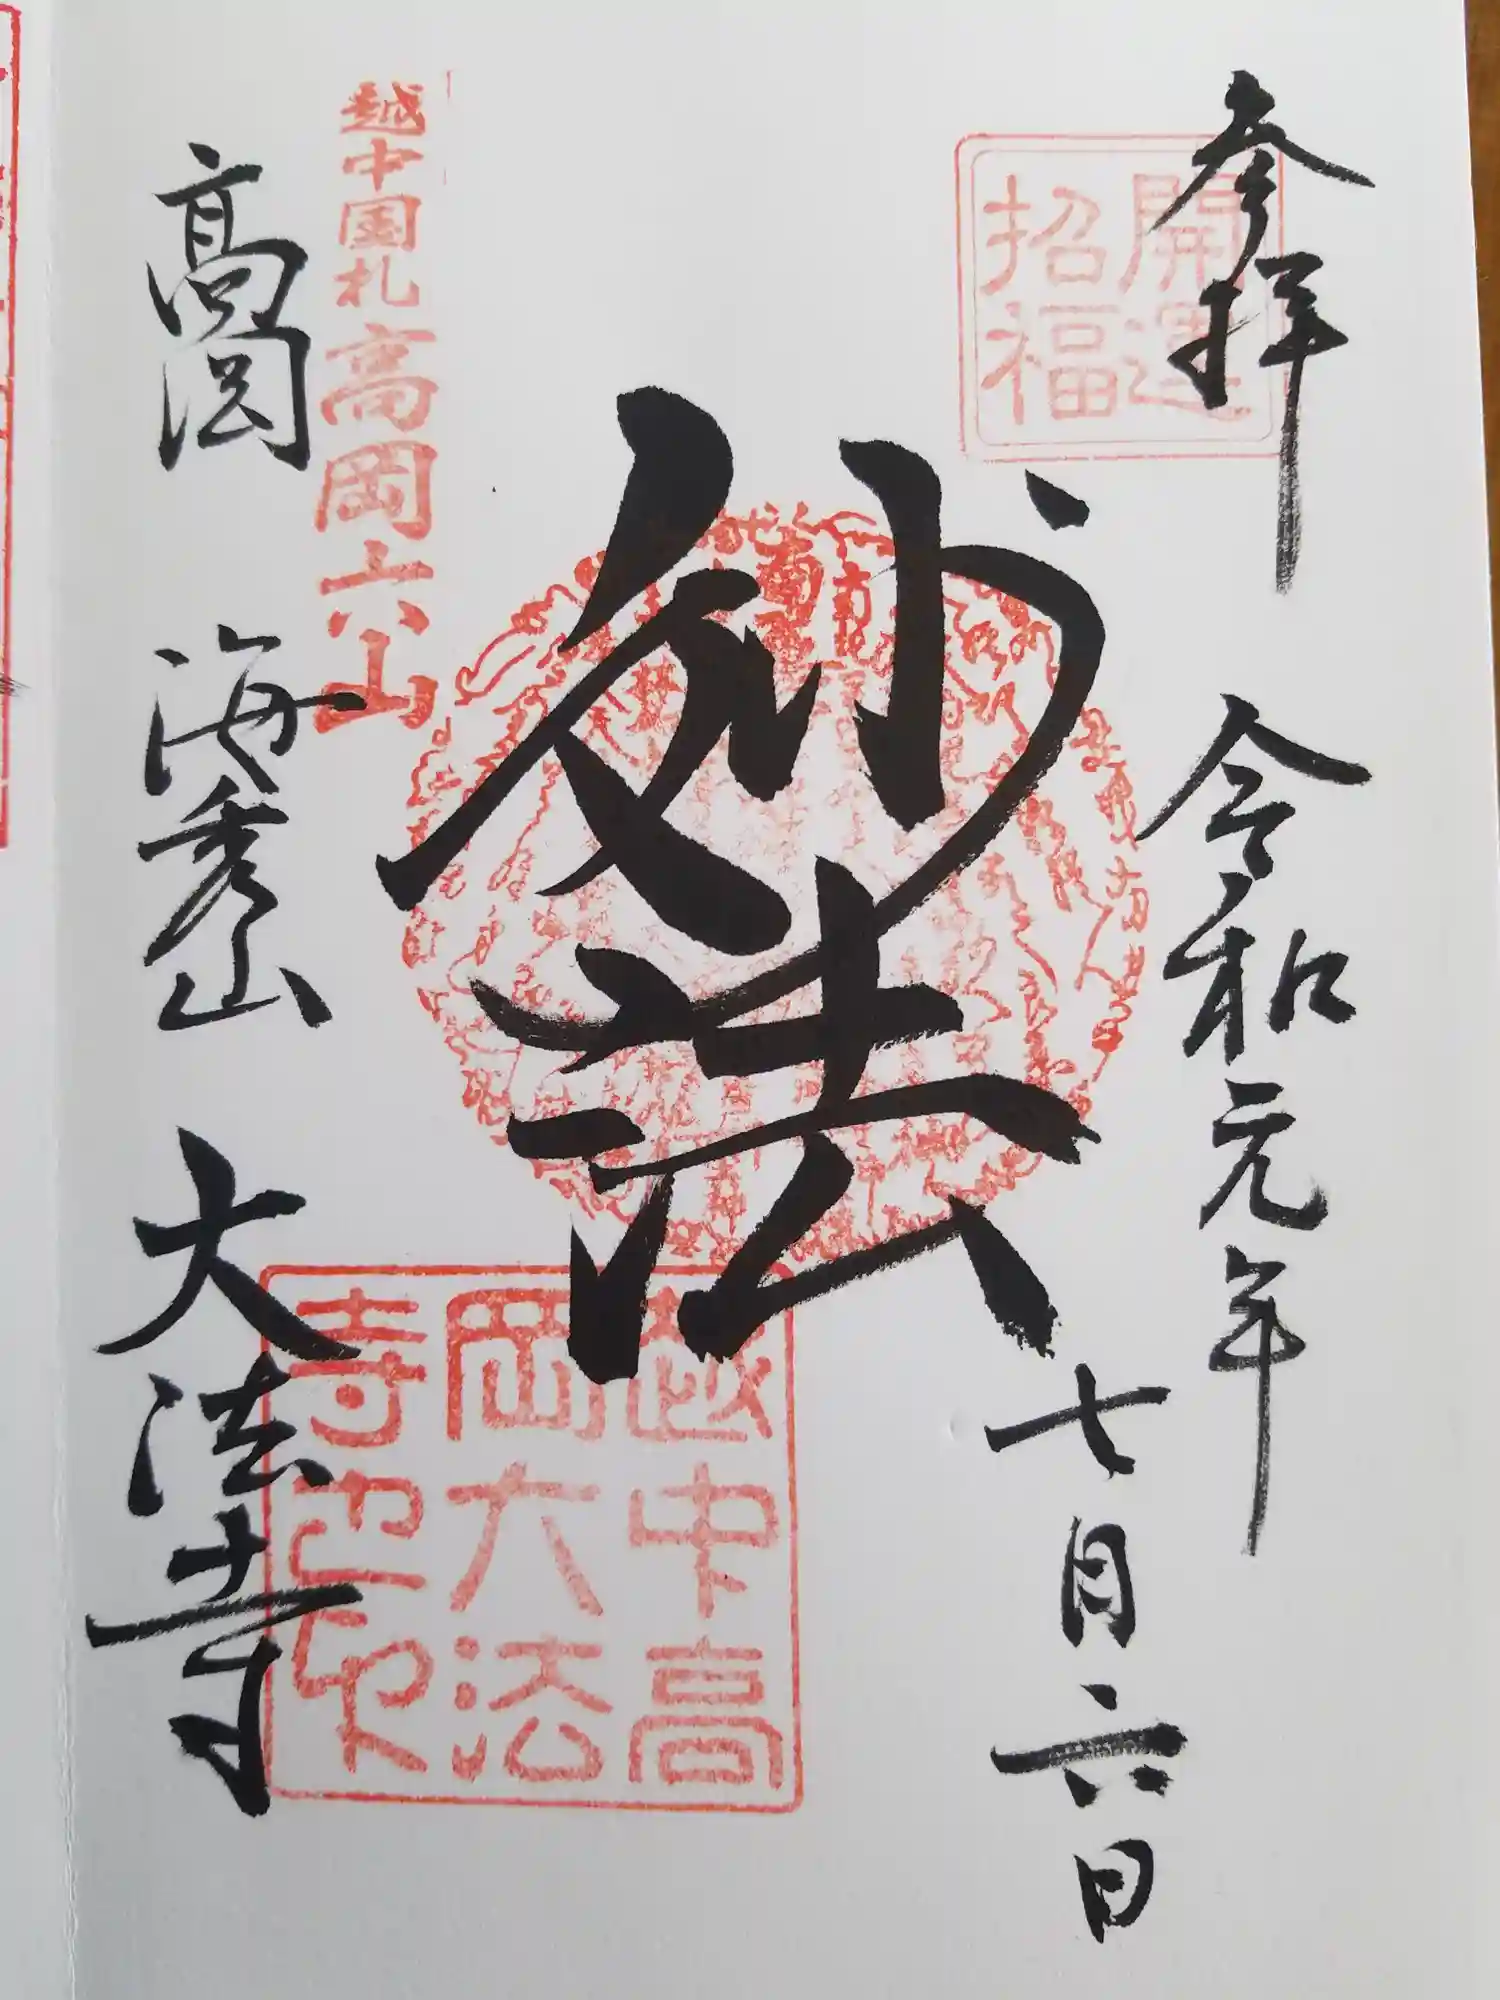 参拝
開運
招福
令和元年
七月六日
妙法
越中国札高岡六山
高岡
海秀山
大法寺
越中高
岡大法
寺也